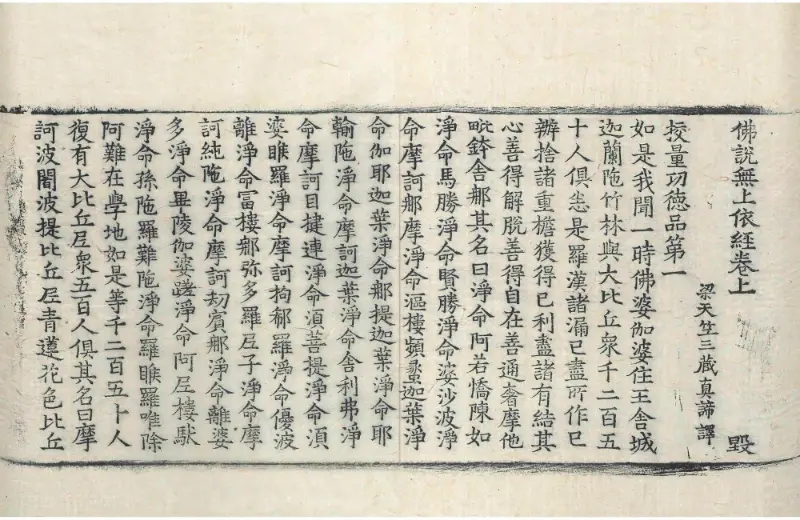 佛說無上依經卷上
毀
梁天竺三藏真諦譯
挍量功德品第一
如是我聞一時佛婆伽婆住王舍城
迦蘭陁竹林與大比丘眾千二百五
十人俱悉是羅漢諸漏已盡所作已
辦捨諸重擔獲得已利盡諸有結其
心善得解脫善得自在善通奢摩他
毗鉢舍那其名曰淨命阿若憍陳如
淨命馬勝淨命賢勝淨命婆沙波淨
命摩訶那摩淨命漚樓頻蠡迦葉淨
命伽耶迦葉淨命那提迦葉淨命耶
輸陁淨命摩訶迦葉淨命舍利弗淨
命摩訶目揵連淨命湏菩提淨命湏
婆睺羅淨命摩訶拘郗羅淨命優波
離淨命冨樓那弥多羅尼子淨命摩
訶純陁淨命摩訶劫賓那淨命離婆
多淨命畢陵伽婆蹉淨命阿尼樓馱
淨命孫陁羅難陁淨命羅睺羅唯除
阿難在學地如是等千二百五十人
復有大比丘尼眾五百人俱其名曰摩
訶波闍波提比丘尼青蓮花色比丘